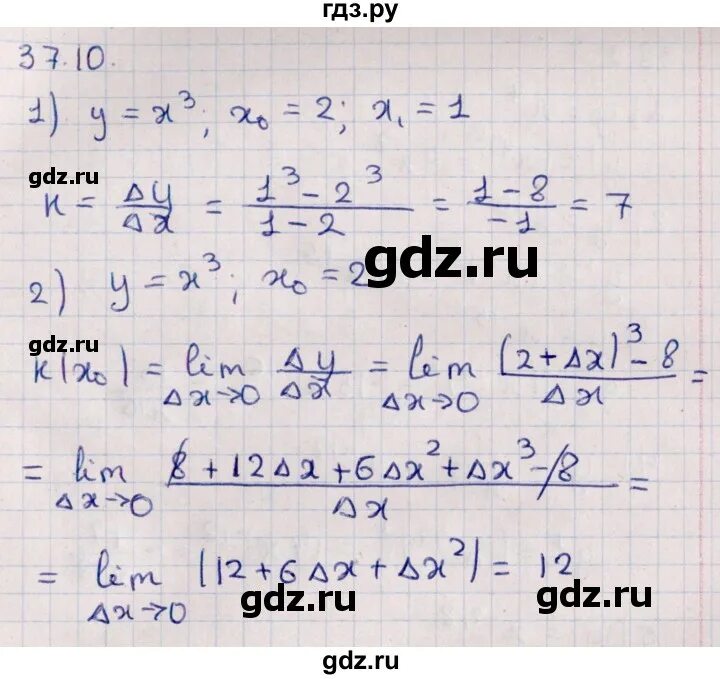 гдз.ру
37.10.
1) y = x³; x₀ = 2; x₁ = 1
gdz.ru
K = Δy/Δx = (1³ - 2³)/(1 - 2) = (1 - 8)/(-1) = 7
gdz.ru
2) y = x³; x₀ = 2
gdz.ru
K(x₀) = lim Δx→0 Δy/Δx = lim Δx→0 ((2+Δx)³ - 8)/Δx =
= lim Δx→0 (8 + 12Δx + 6Δx² + Δx³ - 8)/Δx =
= lim Δx→0 (12 + 6Δx + Δx²) = 12
gdz.ru
gdz.ru
gdz.ru